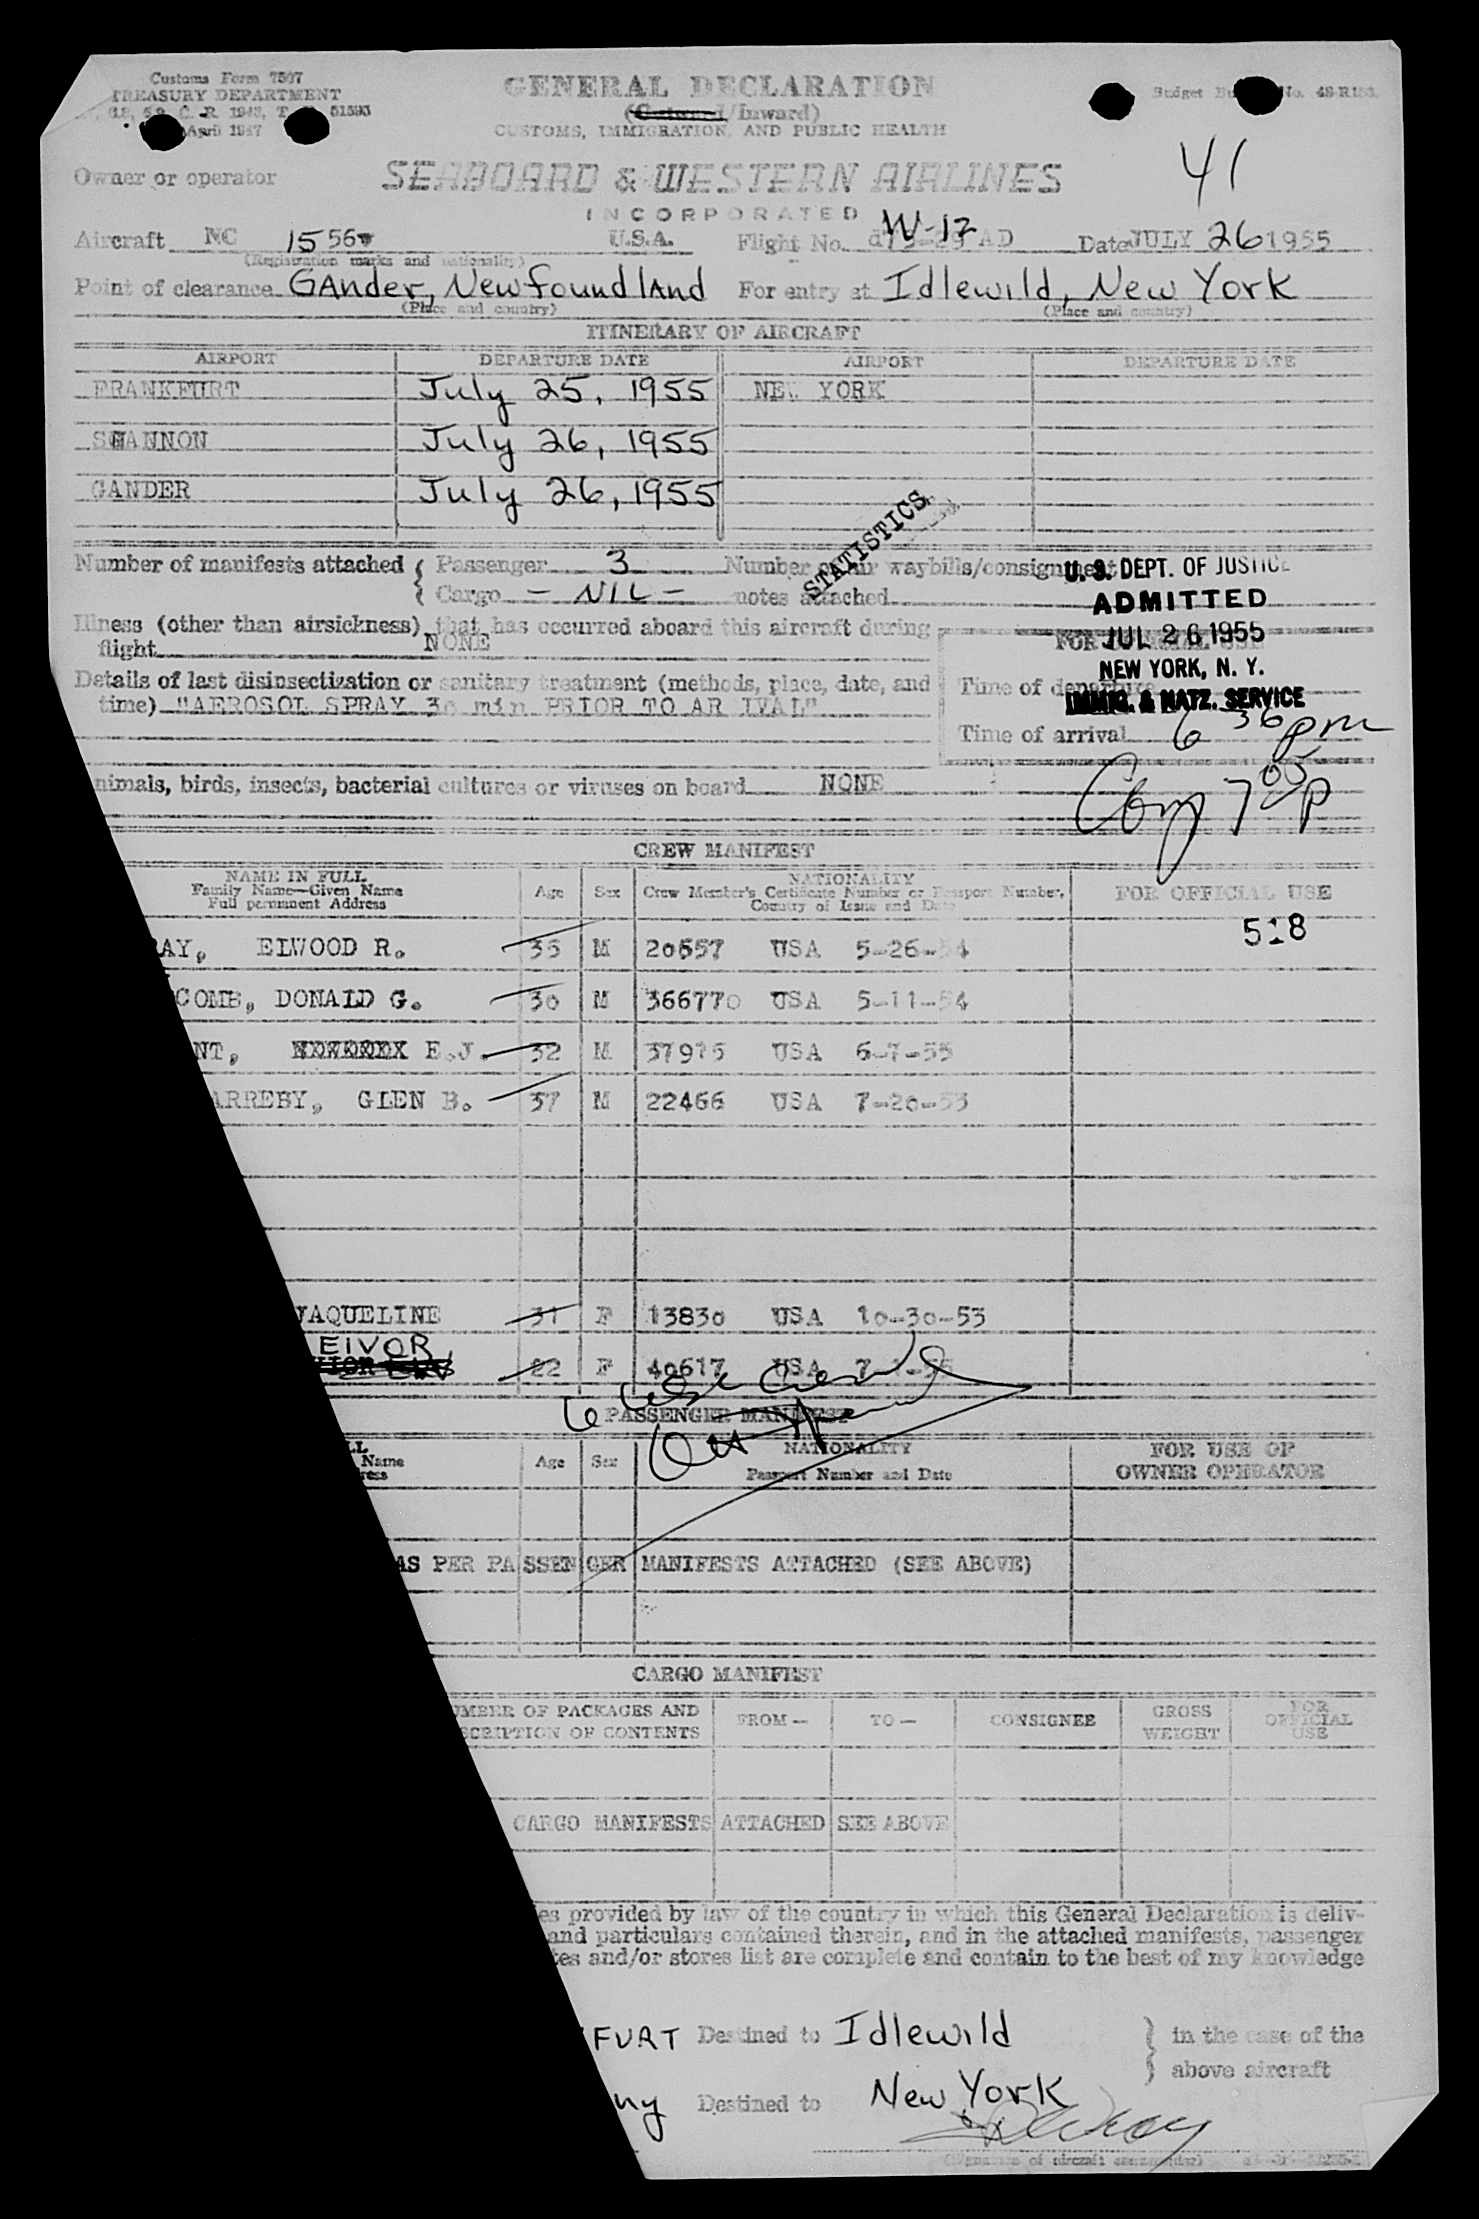 Customs Form 7507
TREASURY DEPARTMENT
April 1947
GENERAL DECLARATION
(Outward/Inward)
CUSTOMS, IMMIGRATION, AND PUBLIC HEALTH
Budget No.
41
Owner or operator
SEABOARD & WESTERN AIRLINES
INCORPORATED
W-12
Aircraft NC 1556 U.S.A. Flight No. AD Date JULY 26 1955
(Registration marks and nationality)
Point of clearance GAnder, NewfoundlAnd For entry at Idlewild, New York
(Place and country) (Place and country)
ITINERARY OF AIRCRAFT
AIRPORT DEPARTURE DATE AIRPORT DEPARTURE DATE
FRANKFURT July 25, 1955 NEW YORK
SHANNON July 26, 1955
GANDER July 26, 1955
STATISTICS
Number of manifests attached { Passenger 3 Number of air waybills/consignment
Cargo - NIL - notes attached
U. S. DEPT. OF JUSTICE
ADMITTED
JUL 26 1955
NEW YORK, N. Y.
IMMIG. & NATZ. SERVICE
Illness (other than airsickness) that has occurred aboard this aircraft during
flight NONE
FOR OFFICIAL USE
Details of last disinsectization or sanitary treatment (methods, place, date, and
time) "AEROSOL SPRAY 30 min PRIOR TO AR IVAL"
Time of departure
Time of arrival 6 36 pm
Animals, birds, insects, bacterial cultures or viruses on board NONE
Comp 7 05 p
CREW MANIFEST
NAME IN FULL
Family Name—Given Name
Full permanent Address
Age Sex
NATIONALITY
Crew Member's Certificate Number or Passport Number,
Country of Issue and Date
FOR OFFICIAL USE
518
RAY, ELWOOD R. 35 M 20557 USA 5-26-54
COMB, DONALD G. 30 M 366770 USA 5-11-54
NT, E.J. 32 M 37975 USA 6-7-55
ARREBY, GLEN B. 37 M 22466 USA 7-20-53
JAQUELINE 31 F 13830 USA 10-30-53
EIVOR
22 F 40617 USA
6
PASSENGER MANIFEST
LL
Name
ress
Age Sex
NATIONALITY
Passport Number and Date
FOR USE OF
OWNER OPERATOR
AS PER PASSENGER MANIFESTS ATTACHED (SEE ABOVE)
CARGO MANIFEST
UMBER OF PACKAGES AND
SCRIPTION OF CONTENTS
FROM— TO— CONSIGNEE
GROSS
WEIGHT
FOR
OFFICIAL
USE
CARGO MANIFESTS ATTACHED SEE ABOVE
es provided by law of the country in which this General Declaration is deliv-
and particulars contained therein, and in the attached manifests, passenger
tes and/or stores list are complete and contain to the best of my knowledge
FURT Destined to Idlewild } in the case of the
above aircraft
ny Destined to New York
(Signature of aircraft commander)